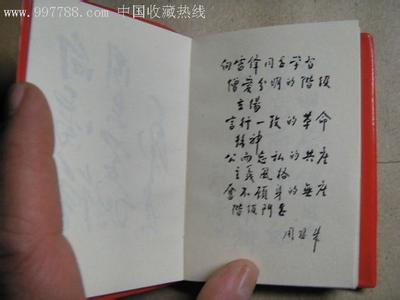 www.997788.com 中国收藏热线
向雷锋同志学习
憎爱分明的階级
立場
言行一致的革命
精神
公而忘私的共産
主义风格
奋不顾身的無産
階级鬥志
周恩来